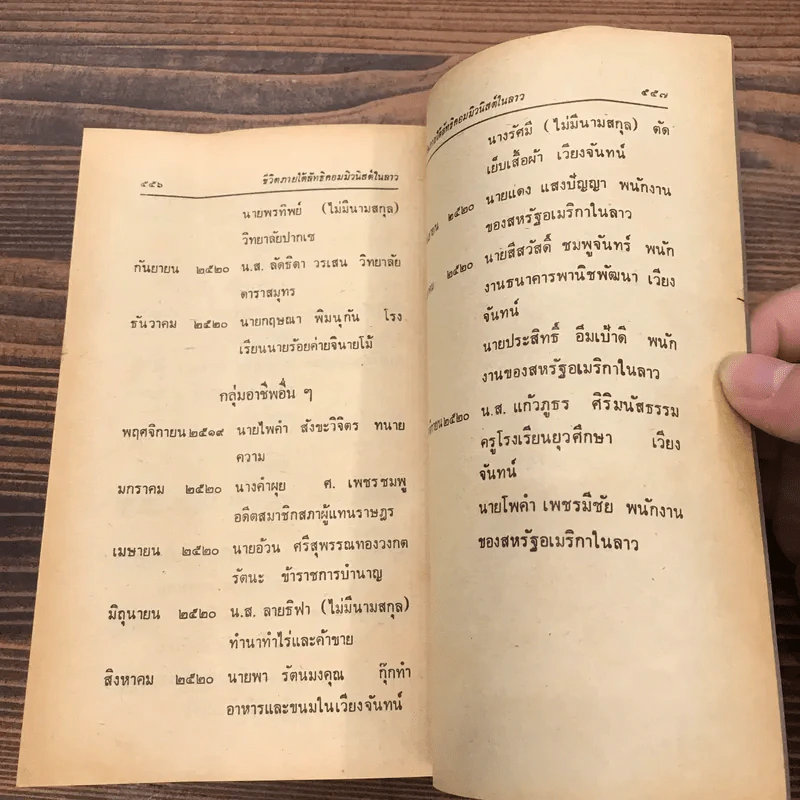 ๕๕๖ ชีวิตภายใต้ลัทธิคอมมิวนิสต์ในลาว
นายพรทิพย์ (ไม่มีนามสกุล)
วิทยาลัยปากเซ
กันยายน ๒๕๒๐ น.ส. ลัดธิดา วรเสน วิทยาลัย
ดาราสมุทร
ธันวาคม ๒๕๒๐ นายกฤษณา พิมนุกัน โรง
เรียนนายร้อยค่ายจินายโม้
กลุ่มอาชีพอื่น ๆ
พฤศจิกายน ๒๕๑๙ นายไพคำ สังขะวิจิตร ทนาย
ความ
มกราคม ๒๕๒๐ นางคำผุย ศ. เพชรชมพู
อดีตสมาชิกสภาผู้แทนราษฎร
เมษายน ๒๕๒๐ นายอ้วน ศรีสุพรรณทองวงกต
รัตนะ ข้าราชการบำนาญ
มิถุนายน ๒๕๒๐ น.ส. ลายธิฟา (ไม่มีนามสกุล)
ทำนาทำไร่และค้าขาย
สิงหาคม ๒๕๒๐ นายพา รัตนมงคุณ กุ๊กทำ
อาหารและขนมในเวียงจันทน์
ลัทธิคอมมิวนิสต์ในลาว ๕๕๗
นางรัศมี (ไม่มีนามสกุล) ตัด
เย็บเสื้อผ้า เวียงจันทน์
๒๕๒๐ นายแดง แสงปัญญา พนักงาน
ของสหรัฐอเมริกาในลาว
๒๕๒๐ นายสีสวัสดิ์ ชมพูจันทร์ พนัก
งานธนาคารพานิชพัฒนา เวียง
จันทน์
นายประสิทธิ์ อึมเป้าดิ พนัก
งานของสหรัฐอเมริกาในลาว
๒๕๒๐ น.ส. แก้วภูธร ศิริมนัสธรรม
ครูโรงเรียนยุวศึกษา เวียง
จันทน์
นายโพคำ เพชรมีชัย พนักงาน
ของสหรัฐอเมริกาในลาว